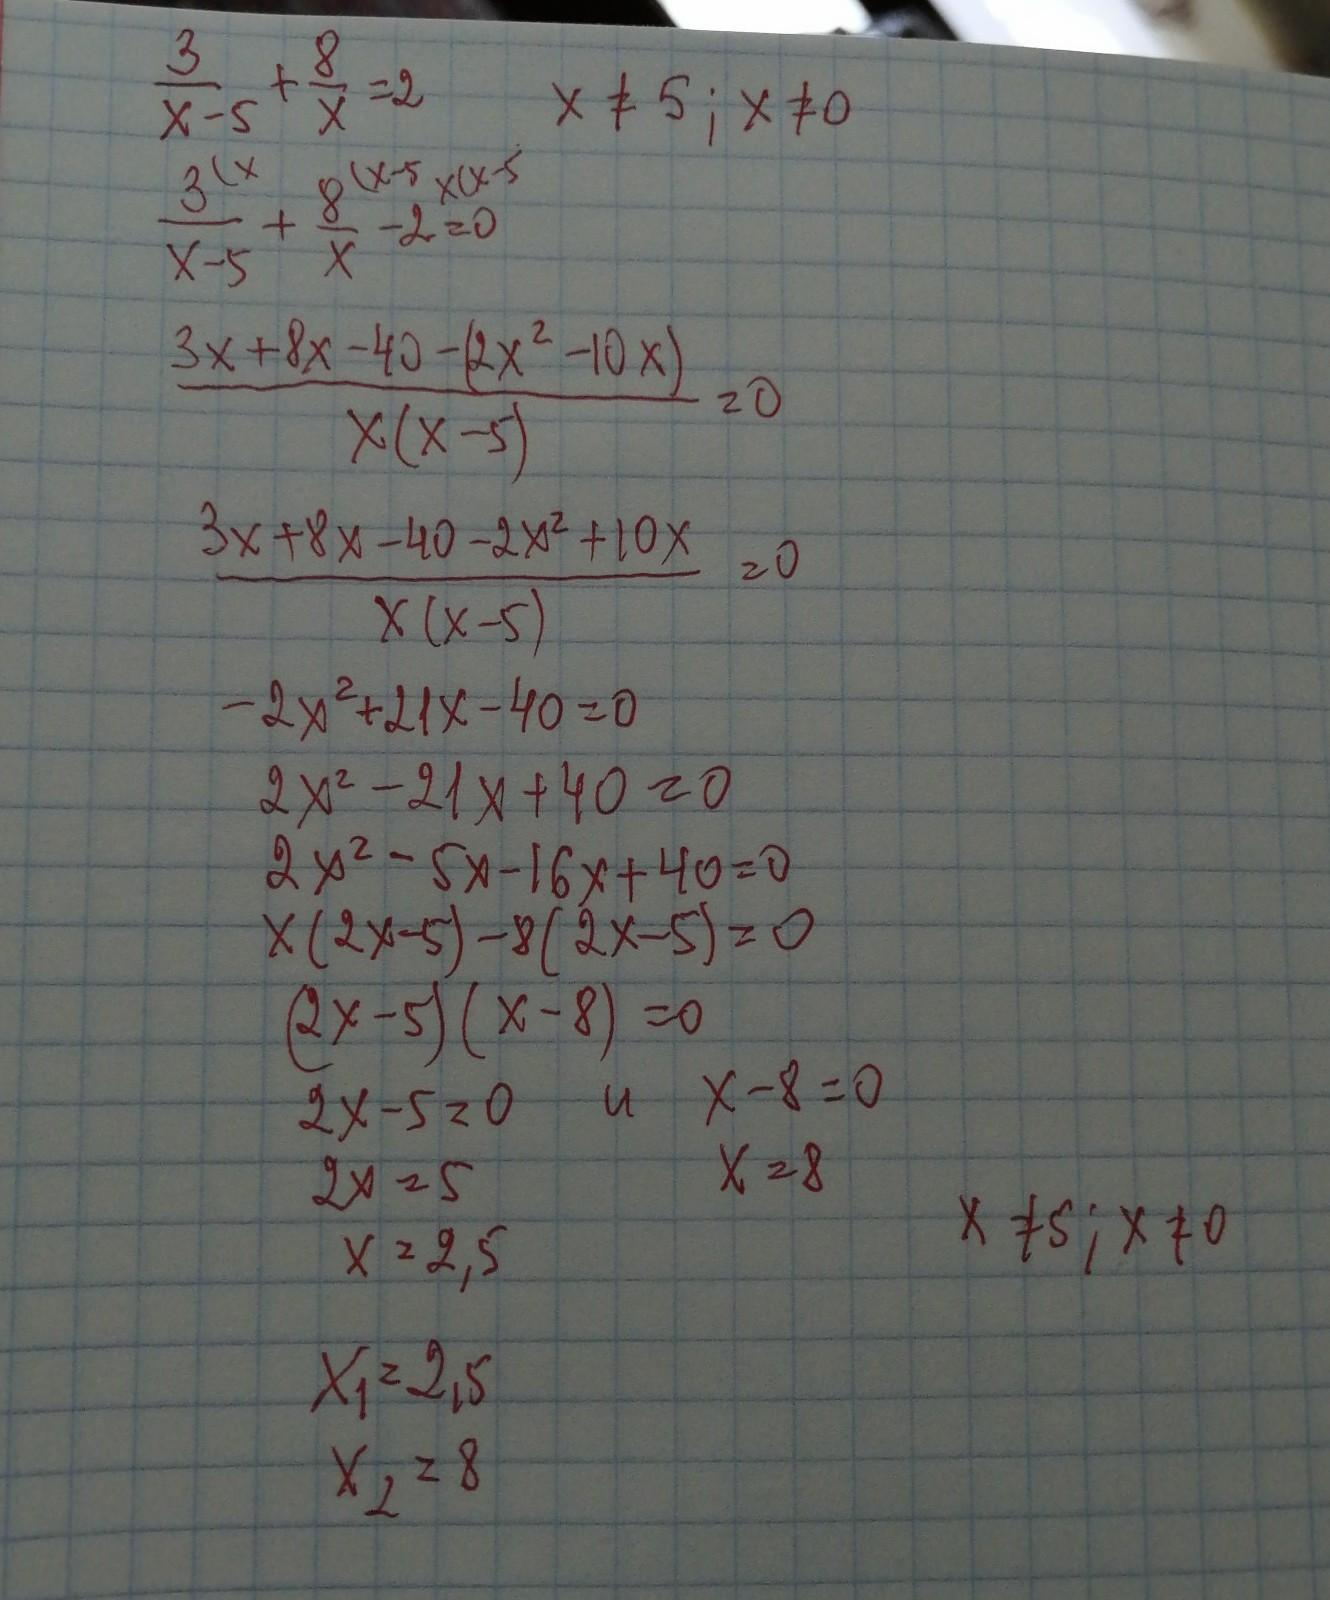 3/(x-5) + 8/x = 2 x ≠ 5; x ≠ 0
3(x/(x-5) + 8(x-5/x - 2 x(x-5 = 0
(3x+8x-40-(2x²-10x))/(x(x-5)) = 0
(3x+8x-40-2x²+10x)/(x(x-5)) = 0
-2x²+21x-40=0
2x²-21x+40=0
2x²-5x-16x+40=0
x(2x-5)-8(2x-5)=0
(2x-5)(x-8)=0
2x-5=0 и x-8=0
2x=5 x=8
x=2,5 x≠5; x≠0
x₁=2,5
x₂=8